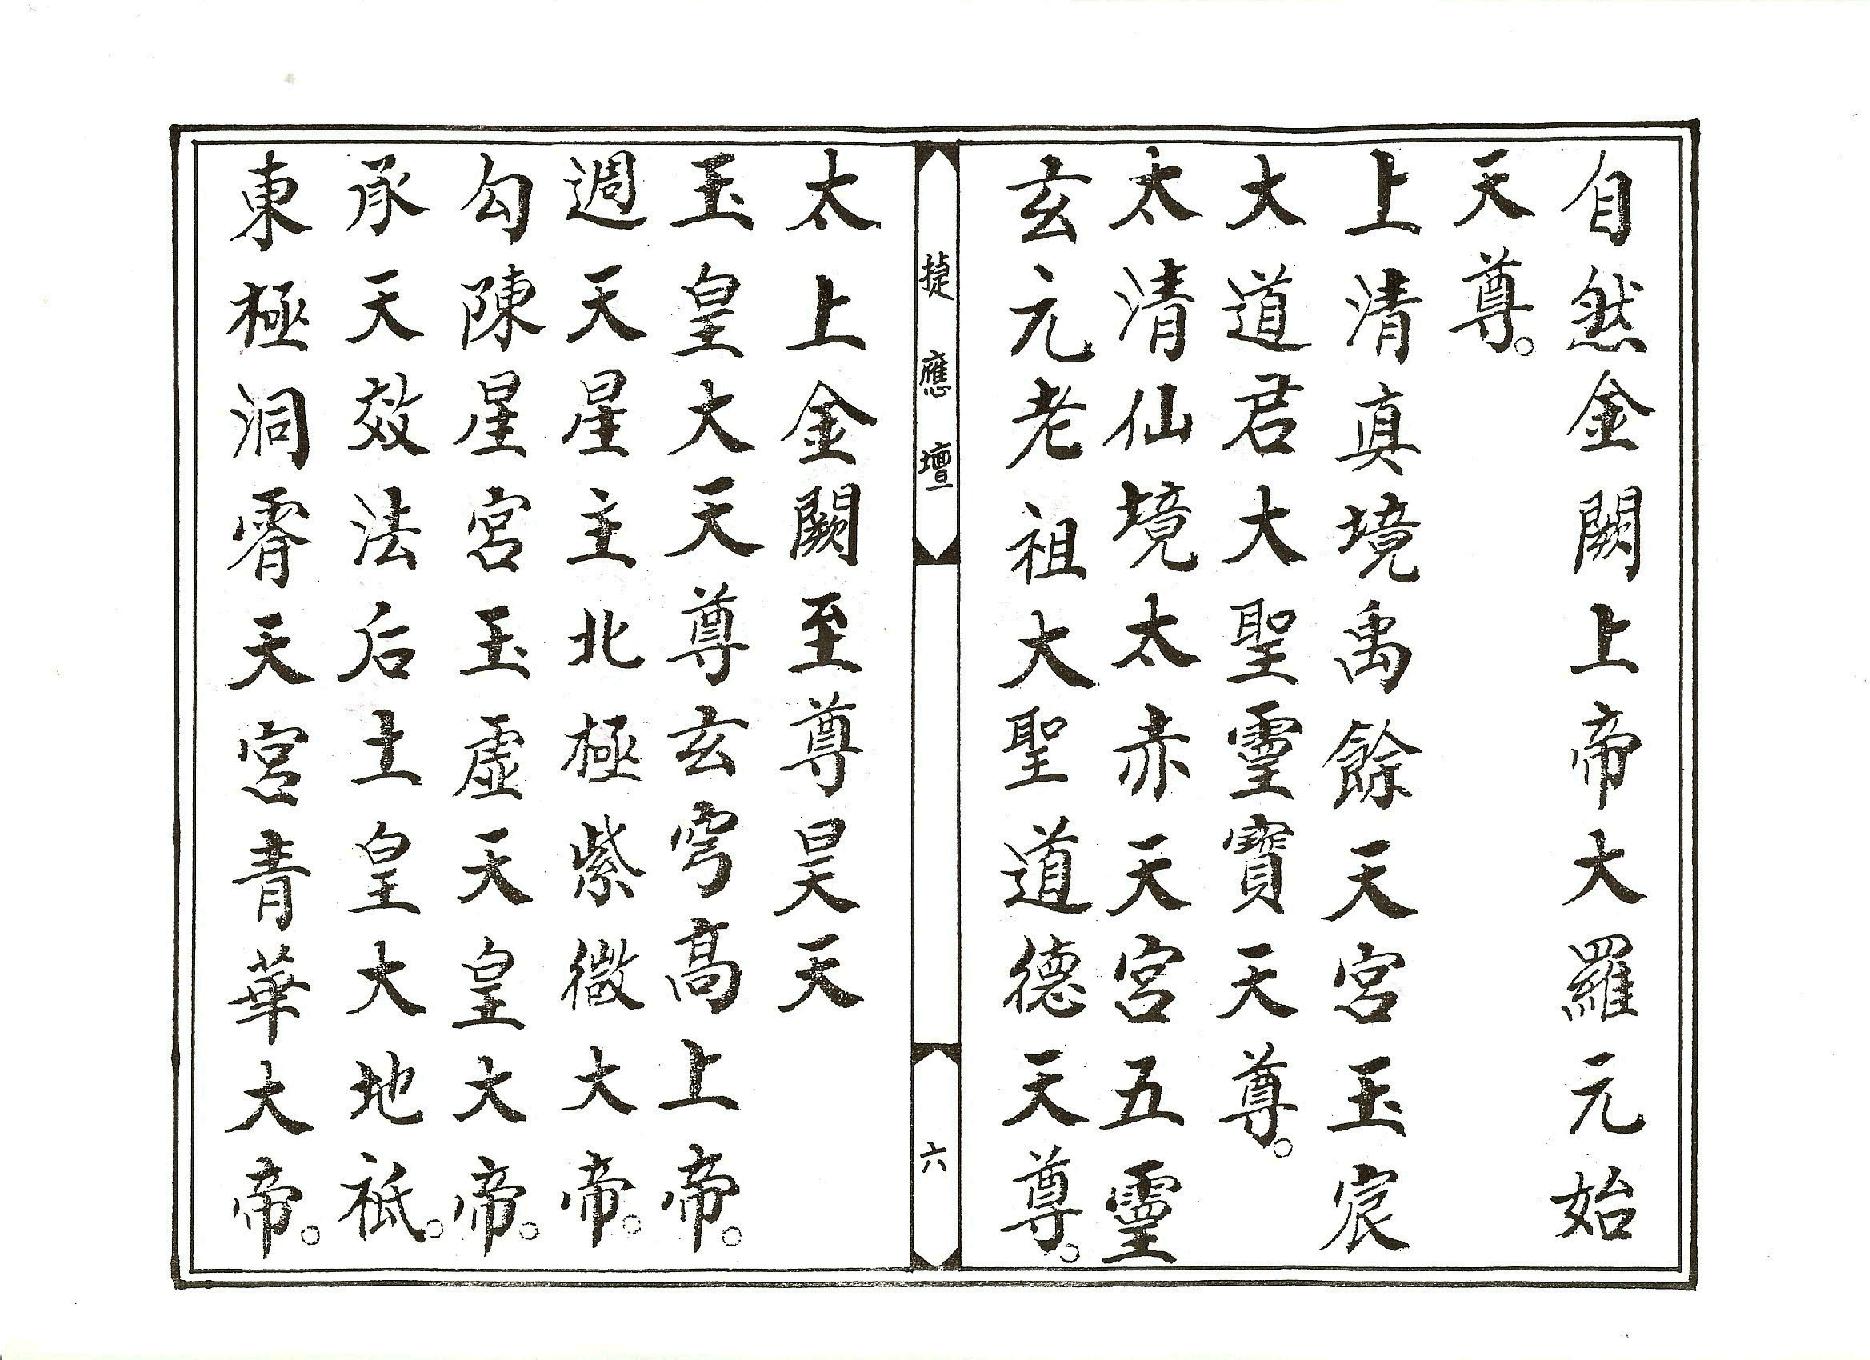 自然金闕上帝大羅元始
天尊。
上清真境禹餘天宮玉宸
大道君大聖靈寶天尊。
太清仙境太赤天宮五靈
玄元老祖大聖道德天尊。
捷應壇
六
太上金闕至尊昊天
玉皇大天尊玄穹高上帝。
週天星主北極紫微大帝。
勾陳星宮玉虛天皇大帝。
承天效法后土皇大地祇。
東極洞霄天宮青華大帝。